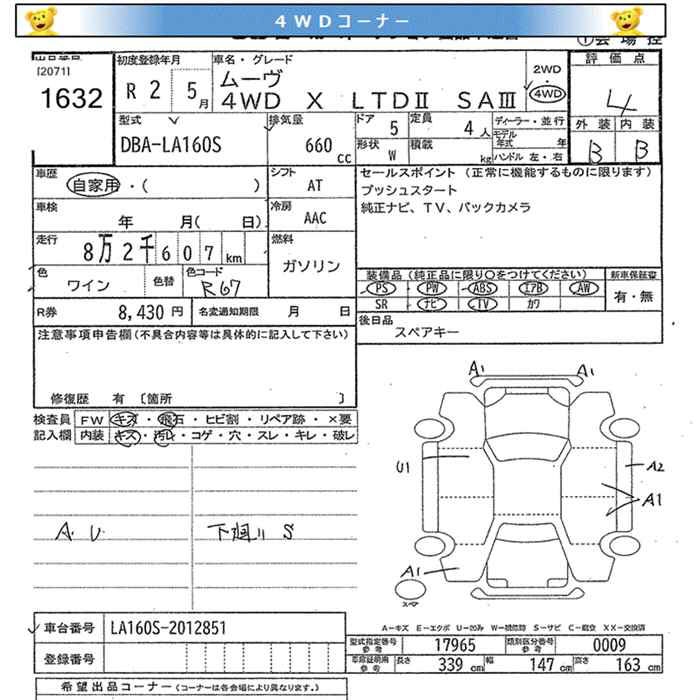 4WDコーナー
出品番号
[2071]
1632
初度登録年月
R 2 5月
車名・グレード
ムーヴ
4WD X LTDⅡ SAⅢ
2WD
・
4WD
①会場控
評価点
4
外装 内装
B B
型式
DBA-LA160S
排気量
660 cc
ドア 5
定員 4人
形状 W
積載 kg
ディーラー・並行
モデル年式 年
ハンドル 左・右
車歴
自家用・( )
シフト
AT
車検
年 月( 日)
冷房
AAC
走行
8万2千607km
燃料
ガソリン
色
ワイン
色替
色コード
R67
R券 8,430 円
名変通知期限 月 日
セールスポイント (正常に機能するものに限ります)
プッシュスタート
純正ナビ、TV、バックカメラ
装備品(純正品に限り○をつけてください)
PS PW ABS エアB AW
SR ナビ TV カワ
新車保証書
有・無
後日品
スペアキー
注意事項申告欄(不具合内容等は具体的に記入して下さい)
修復歴 有 〔箇所 〕
検査員記入欄
FW キズ・飛石・ヒビ割・リペア跡・×要
内装 キズ・汚レ・コゲ・穴・スレ・キレ・破レ
A U
下廻り S
A1 A1
U1 A2
A1
A1
スペア
A-キズ E-エクボ U-凹み W-補修跡 S-サビ C-腐食 XX-交換済
車台番号 LA160S-2012851
登録番号
型式指定番号 参考 17965
類別区分番号 参考 0009
車庫証明用 参考
長さ 339 cm 幅 147 cm 高さ 163 cm
希望出品コーナー(コーナーは各会場により異なります。)